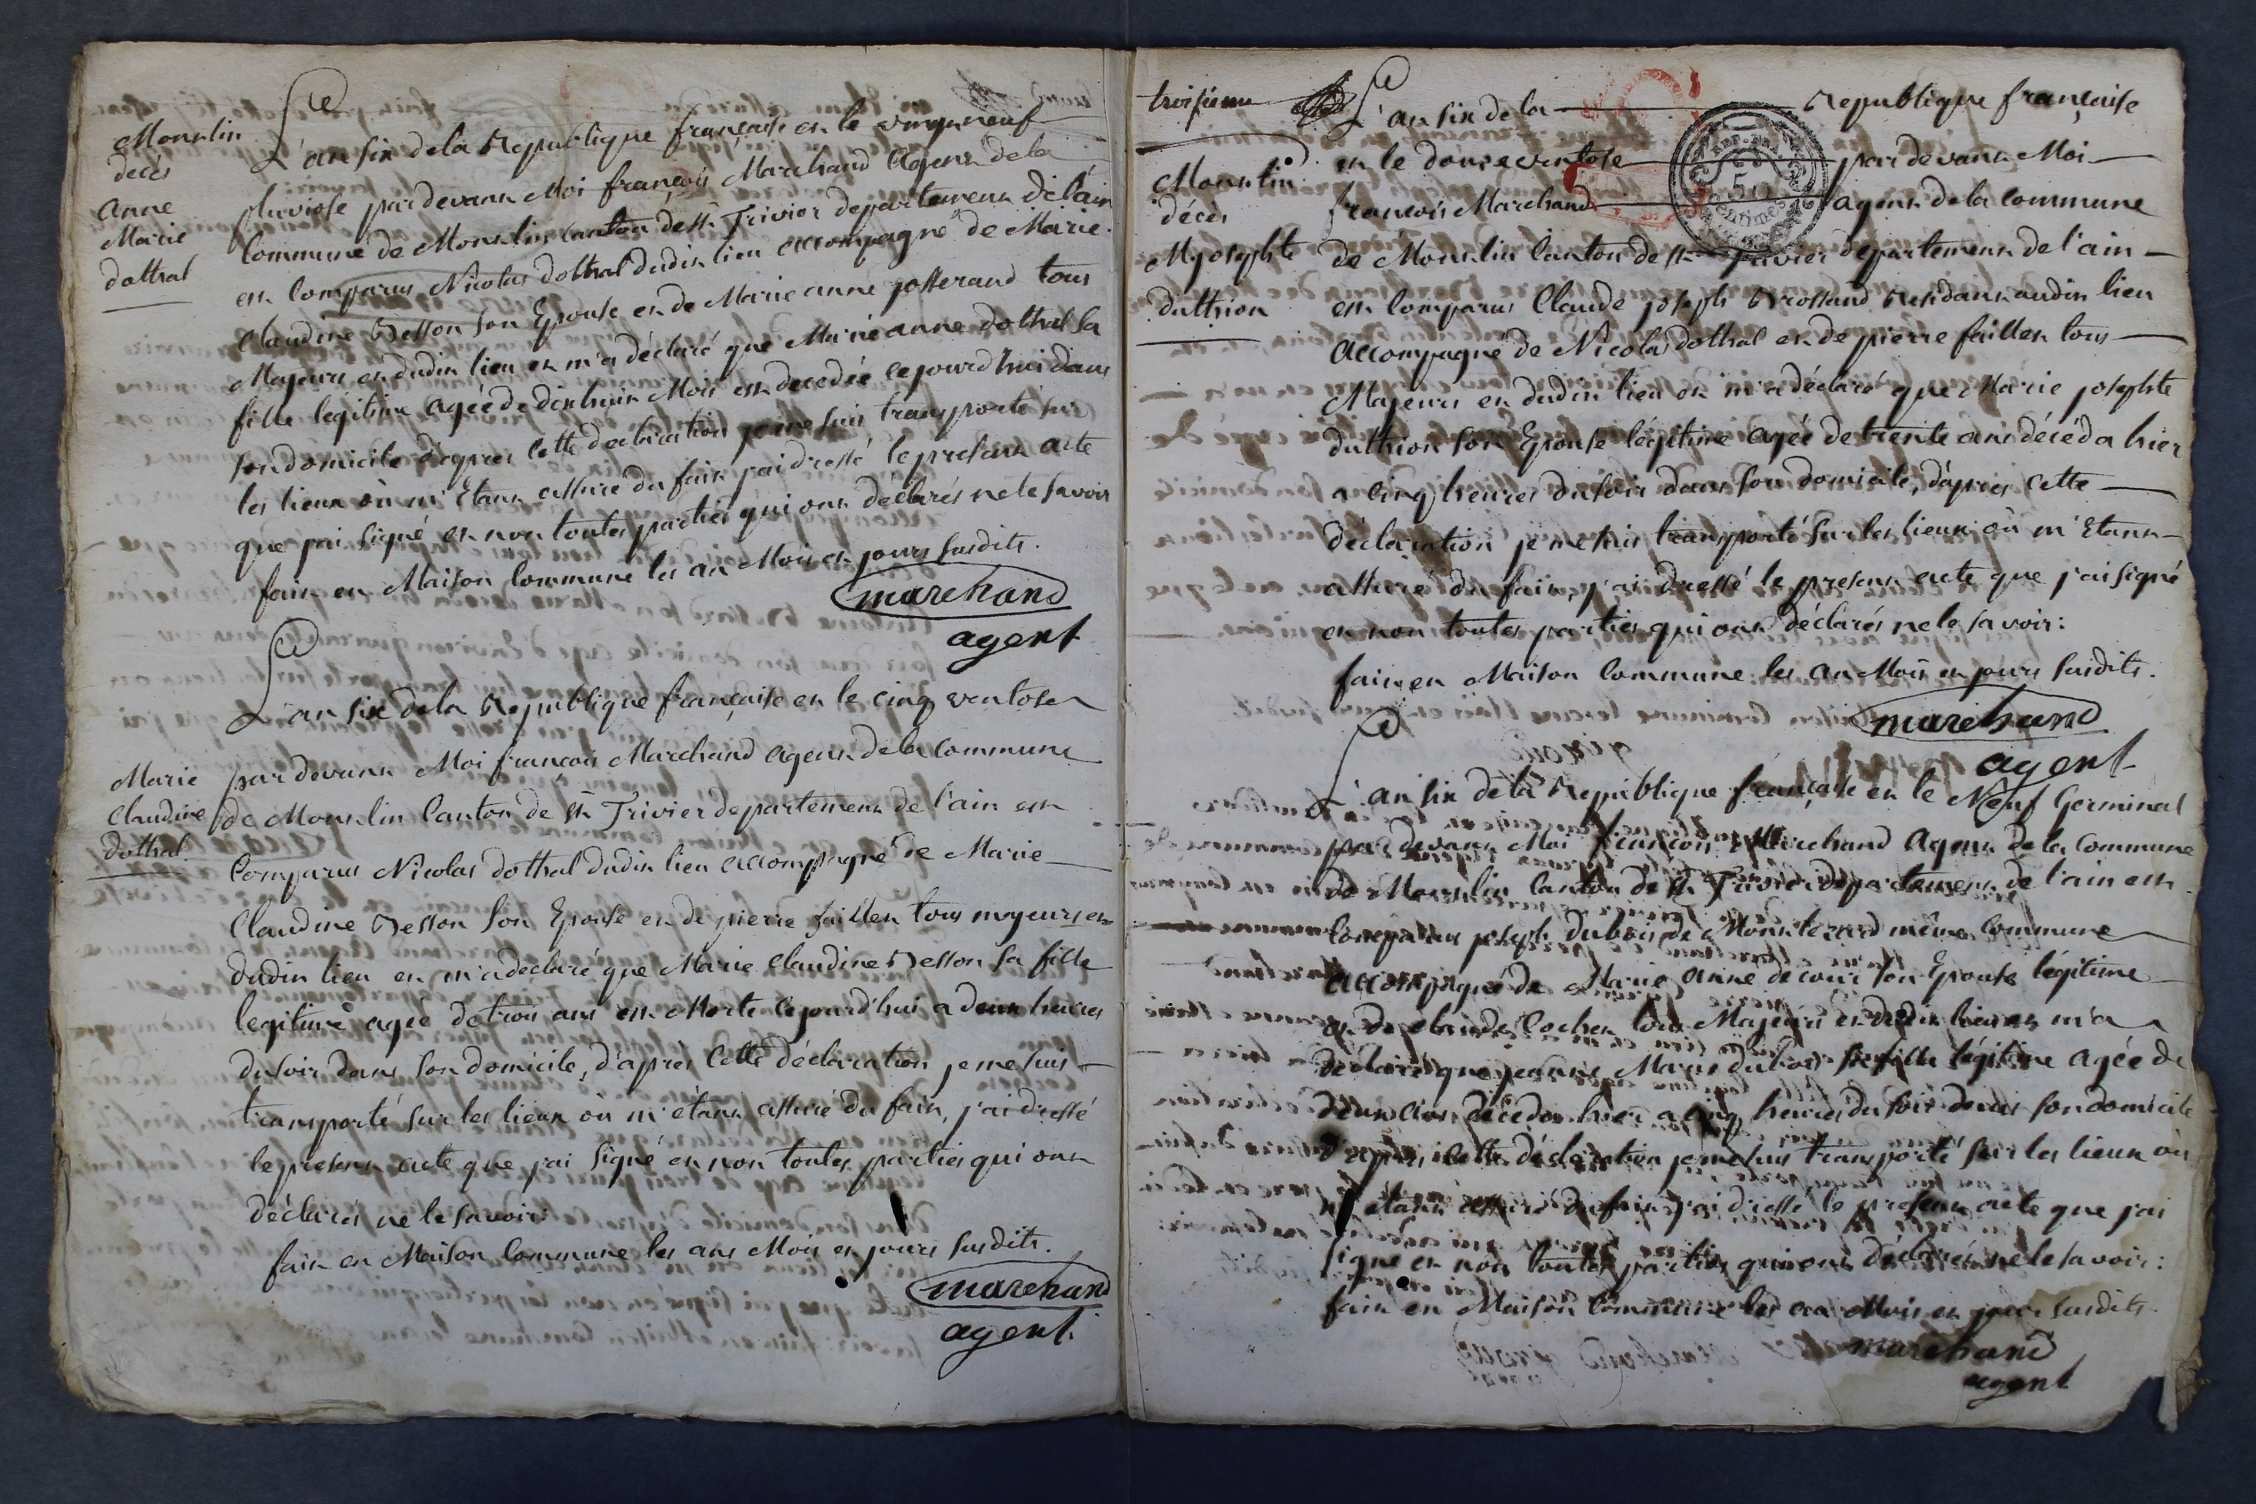 Monslin
décés
anne
Marie
dothal
L'an six de la Republique française et le vingt neuf
pluviose pardevant Moi françois Marchand agent de la
Commune de Monslin Canton de St Trivier departement de l'ain
est Comparus Nicolas dothal dudit lieu accompagné de Marie
Claudine Besson son Epouse et de Marie anne josserand tous
Majeurs et dudit lieu et m'a déclaré que Marie anne dothal sa
fille legitime agée de dix huit Mois est decedée cejourd'hui dans
son domicile d'apres cette declaration je me suis transporté sur
les lieux où m'Etant assuré du fait j'ai dressé le present acte
que j'ai signé et non toutes parties qui ont déclarés ne le savoir
fait en Maison Commune les an Mois et jours susdits.
marchand
agent
Marie
Claudine
dothal
L'an six de la Republique française et le cinq ventose
par devant Moi françois Marchand agent de la Commune
de Monslin Canton de St Trivier departement de l'ain est
Comparus Nicolas dothal dudit lieu accompagné de Marie
Claudine Besson son Epouse et de pierre faillet tous majeurs et
dudit lieu et m'a declaré que Marie Claudine Besson sa fille
legitime agée de trois ans est Morte cejourd'hui a deux heures
du soir dans son domicile, d'apres cette déclaration je me suis
transporté sur les lieux où m'étant assuré du fait, j'ai dressé
le present acte que j'ai signé et non toutes parties qui ont
déclarés ne le savoir:
fait en Maison Commune les ans Mois et jours susdits.
marchand
agent
troisieme
Monslin
décés
M josephte
duthion
L'an six de la Republique française
et le douze ventose par devant Moi
françois Marchand agent de la Commune
de Monslin Canton de St Trivier departement de l'ain
est Comparus Claude joseph Brossand Residant audit lieu
accompagné de Nicolas dothal et de pierre faillet tous
Majeurs et dudit lieu et m'a déclaré que Marie josephte
duthion son Epouse légitime agée de trente ans décéda hier
a cinq heures du soir dans son domicile, d'apres cette
déclaration je me suis transporté sur les lieux où m'Etant
assuré du fait, j'ai dressé le present acte que j'ai signé
et non toutes parties qui ont déclarés ne le savoir:
fait en Maison Commune les an Mois et jours susdits.
marchand
agent
L'an six de la Republique française et le Neuf Germinal
par devant Moi françois Marchand agent de la Commune
de Monslin Canton de St Trivier departement de l'ain est
Comparus joseph dubois de même Commune
accompagné de Marie anne decour son Epouse légitime
et de Claude Cochet tous Majeurs et dudit lieu et m'a
déclaré que jeanne Marie dubois sa fille légitime agée de
deux ans décéda hier a cinq heures du soir dans son domicile
d'apres cette déclaration je me suis transporté sur les lieux où
m'étant assuré du fait j'ai dressé le present acte que j'ai
signé et non toutes parties qui ont déclarés ne le savoir:
fait en Maison Commune les an Mois et jour susdits.
marchand
agent